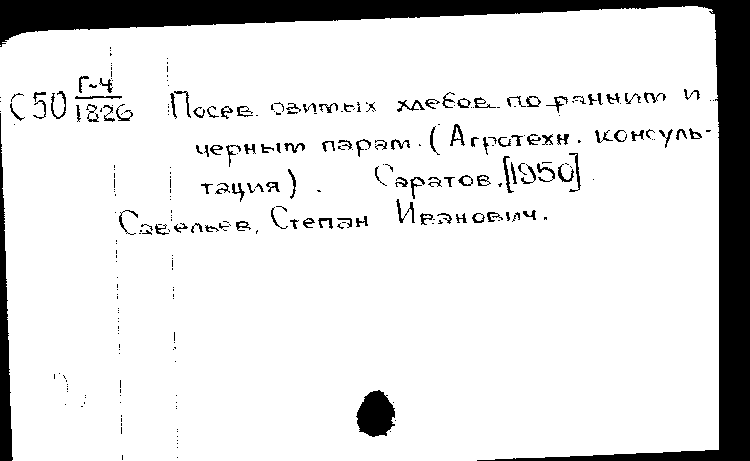 Г-4
С50 1826 Посев озимых хлебов по ранним и
черным парам. (Агротехн. консуль-
тация). Саратов, [1950].
Савельев, Степан Иванович.